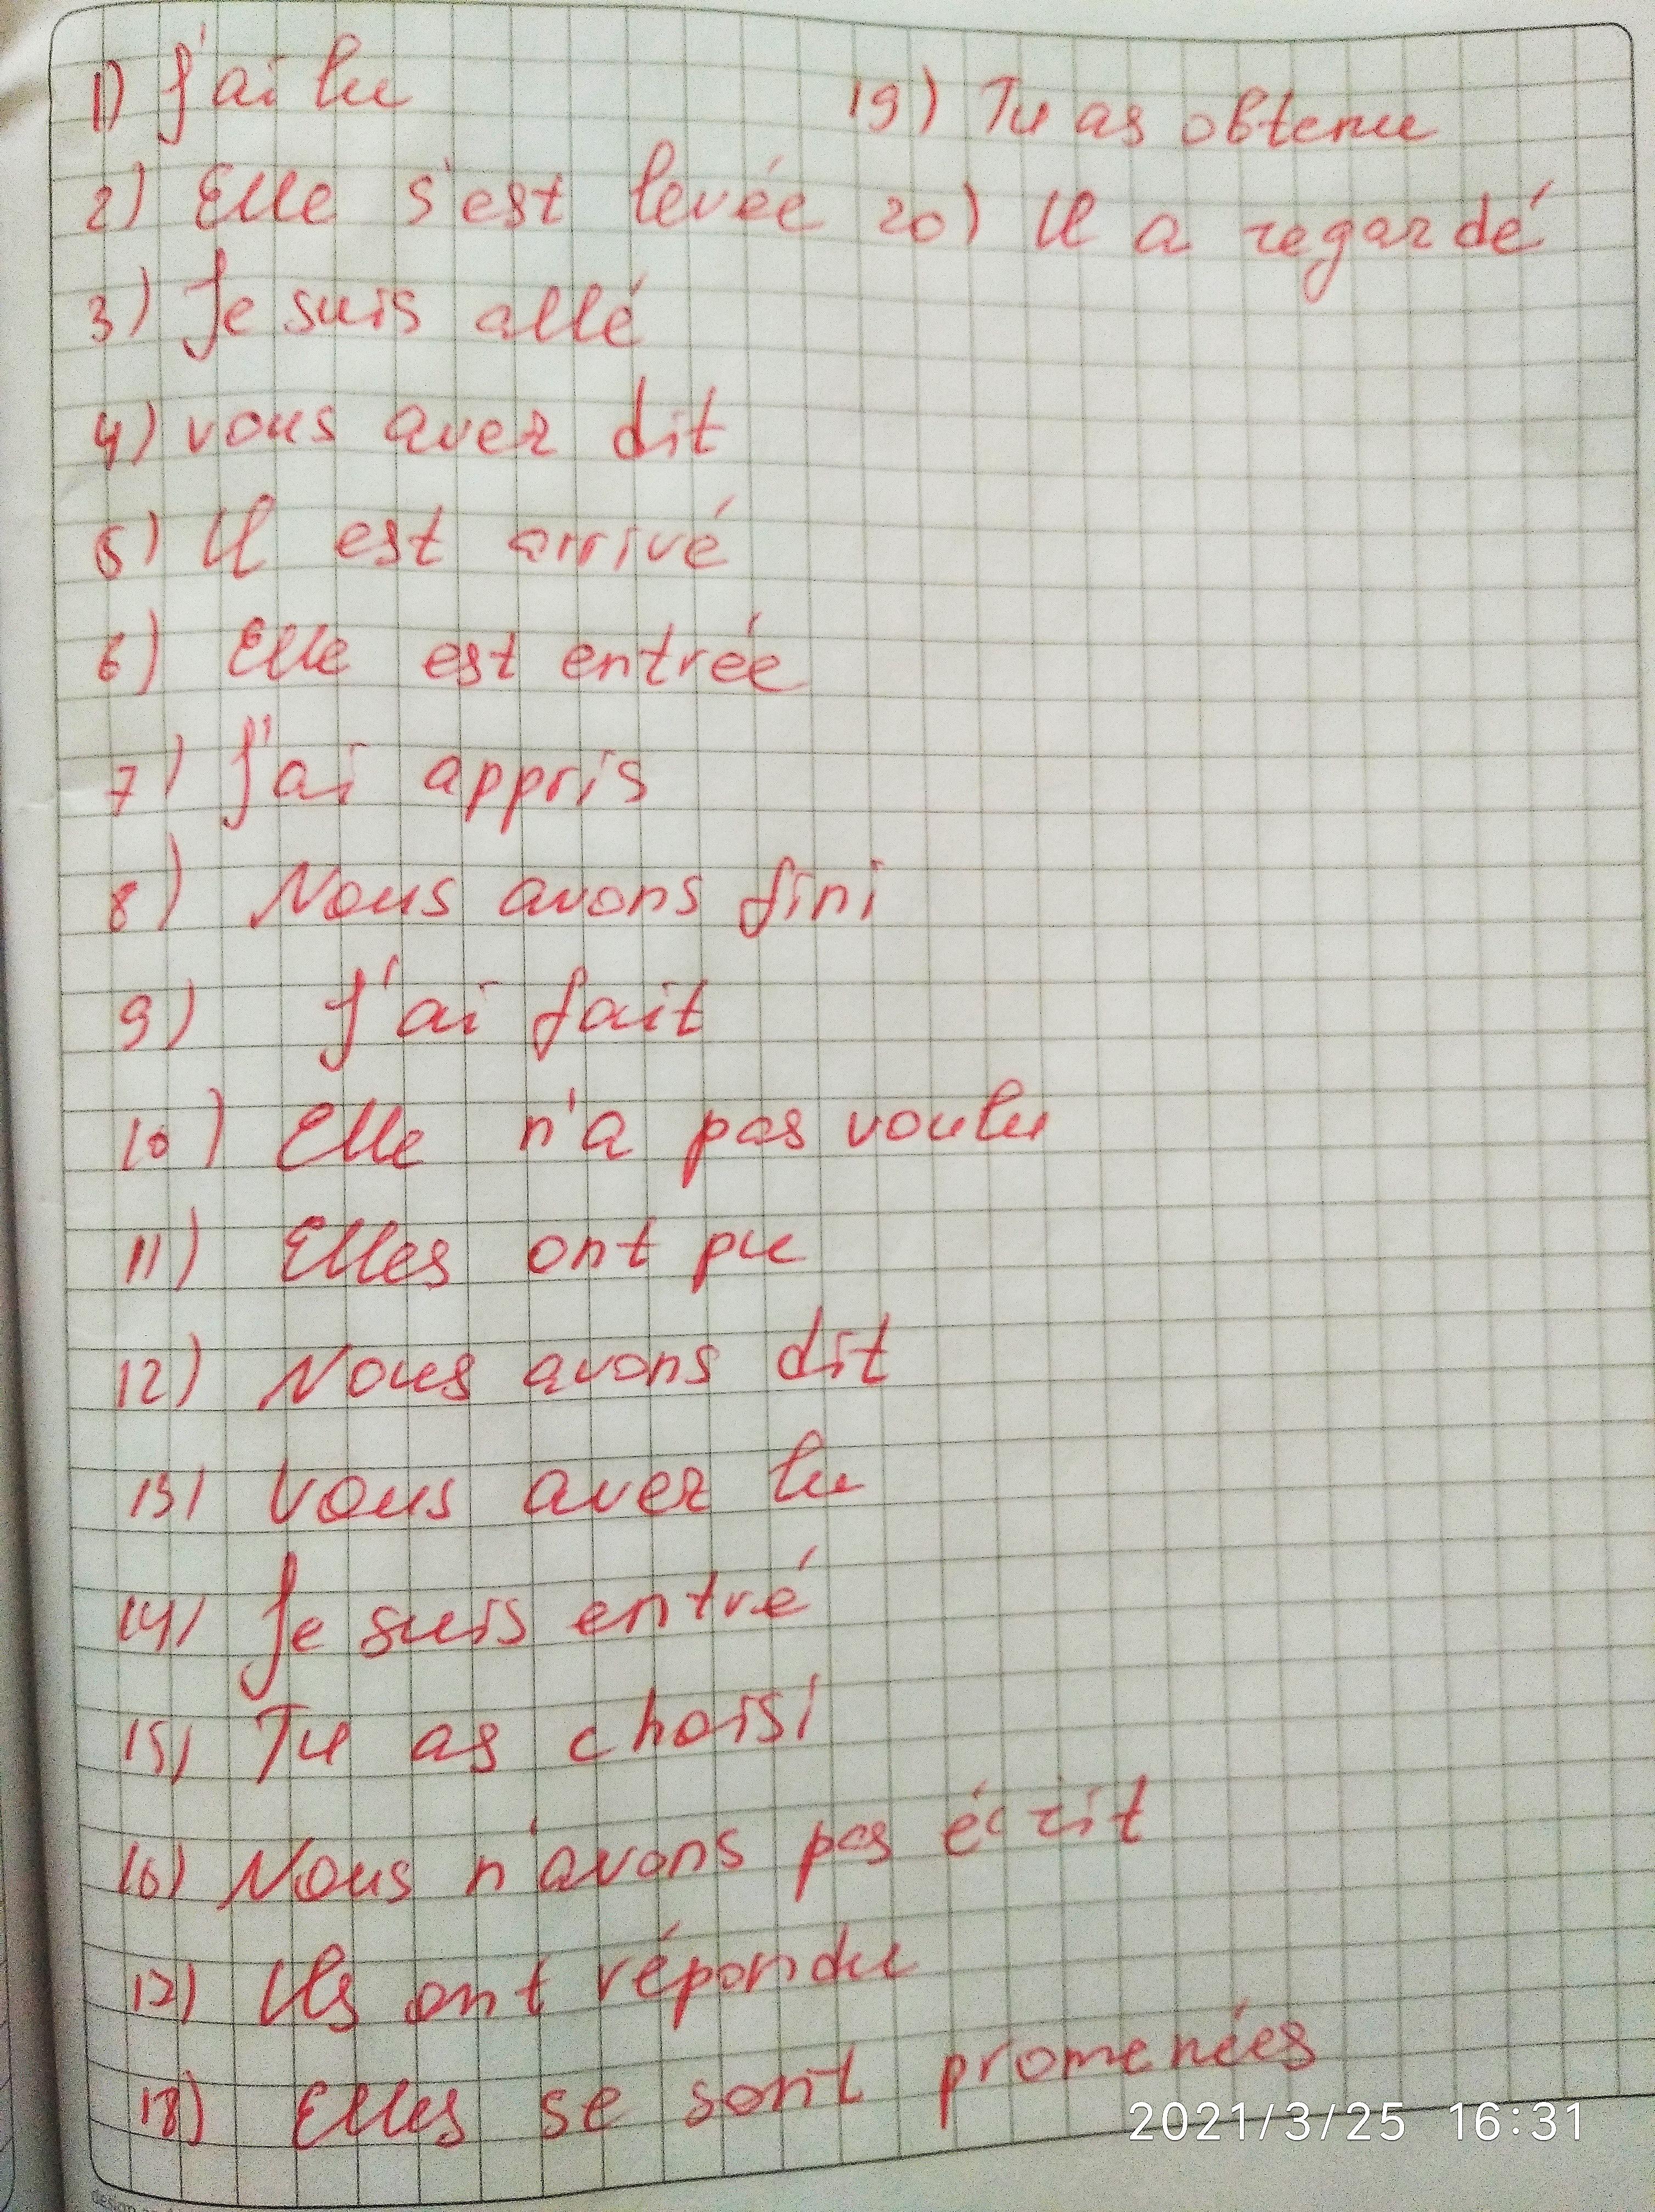 1) J'ai lu
2) Elle s'est levée
3) Je suis allé
4) vous avez dit
5) Il est arrivé
6) Elle est entrée
7) J'ai appris
8) Nous avons fini
9) J'ai fait
10) Elle n'a pas voulu
11) Elles ont pu
12) Nous avons dit
13) Vous avez lu
14) Je suis entré
15) Tu as choisi
16) Nous n'avons pas écrit
17) Ils ont répondu
18) Elles se sont promenées
19) Tu as obtenu
20) Il a regardé
2021/3/25 16:31